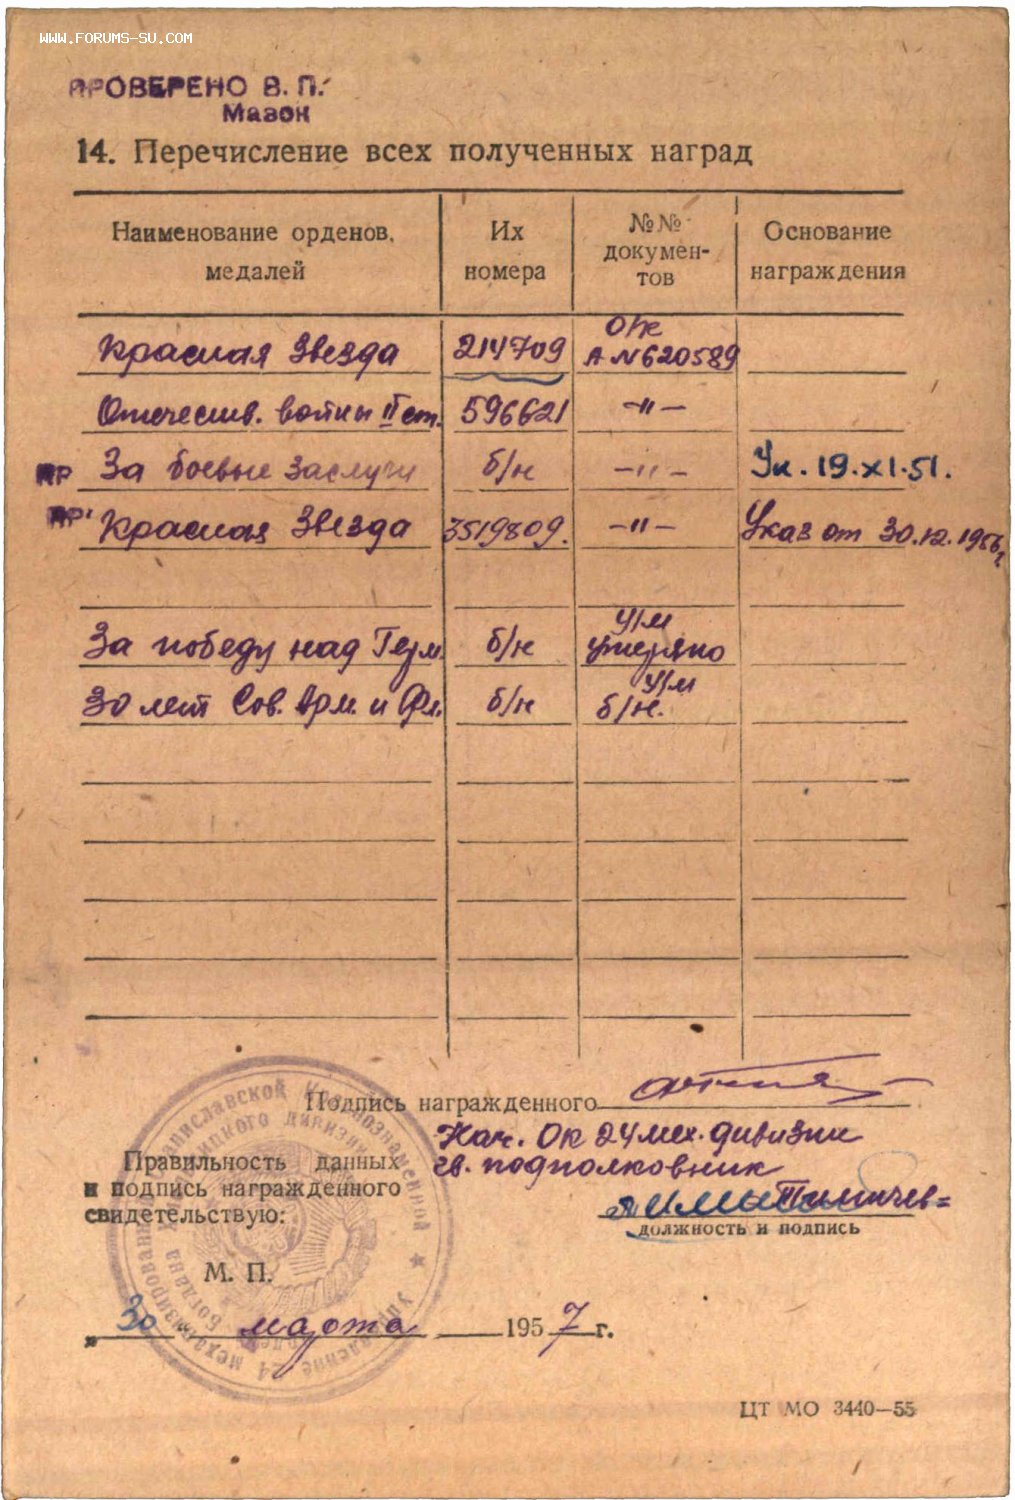 WWW.FORUMS-SU.COM
ПРОВЕРЕНО В. П.
Мазок
14. Перечисление всех полученных наград
Наименование орденов, медалей
Их номера
№№ докумен-
тов
Основание награждения
Красная Звезда 214709 О/к А №620589
Отечеств. войны II ст. 596621 -"-
ПР За боевые заслуги б/н -"- Ук. 19.XI.51.
ПР Красная Звезда 3519809. -"- Указ от 30.12.1956г.
За победу над Герм. б/н У/м утеряно
30 лет Сов. Арм. и Фл. б/н У/м б/н.
Подпись награжденного
Нач. ОК 24 мех. дивизии
гв. подполковник
Правильность данных
и подпись награжденного
свидетельствую:
должность и подпись
М. П.
„30" марта 1957 г.
Управление 24 механизированной Краснознаменной Богдана дивизии
ЦТ МО 3440—55